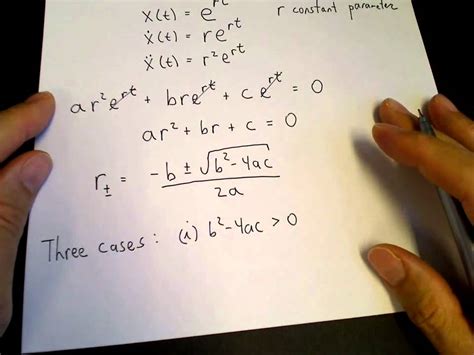 X(t) = e^{rt} r constant parameter
Ẋ(t) = re^{rt}
Ẍ(t) = r²e^{rt}
ar²e^{rt} + bre^{rt} + ce^{rt} = 0
ar² + br + c = 0
r± = (-b ± √(b²-4ac)) / 2a
Three cases: (i) b²-4ac > 0